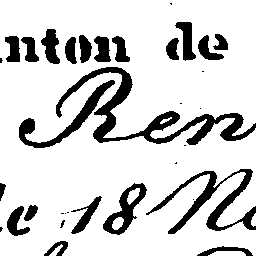 nton de
Ren
le 18 No